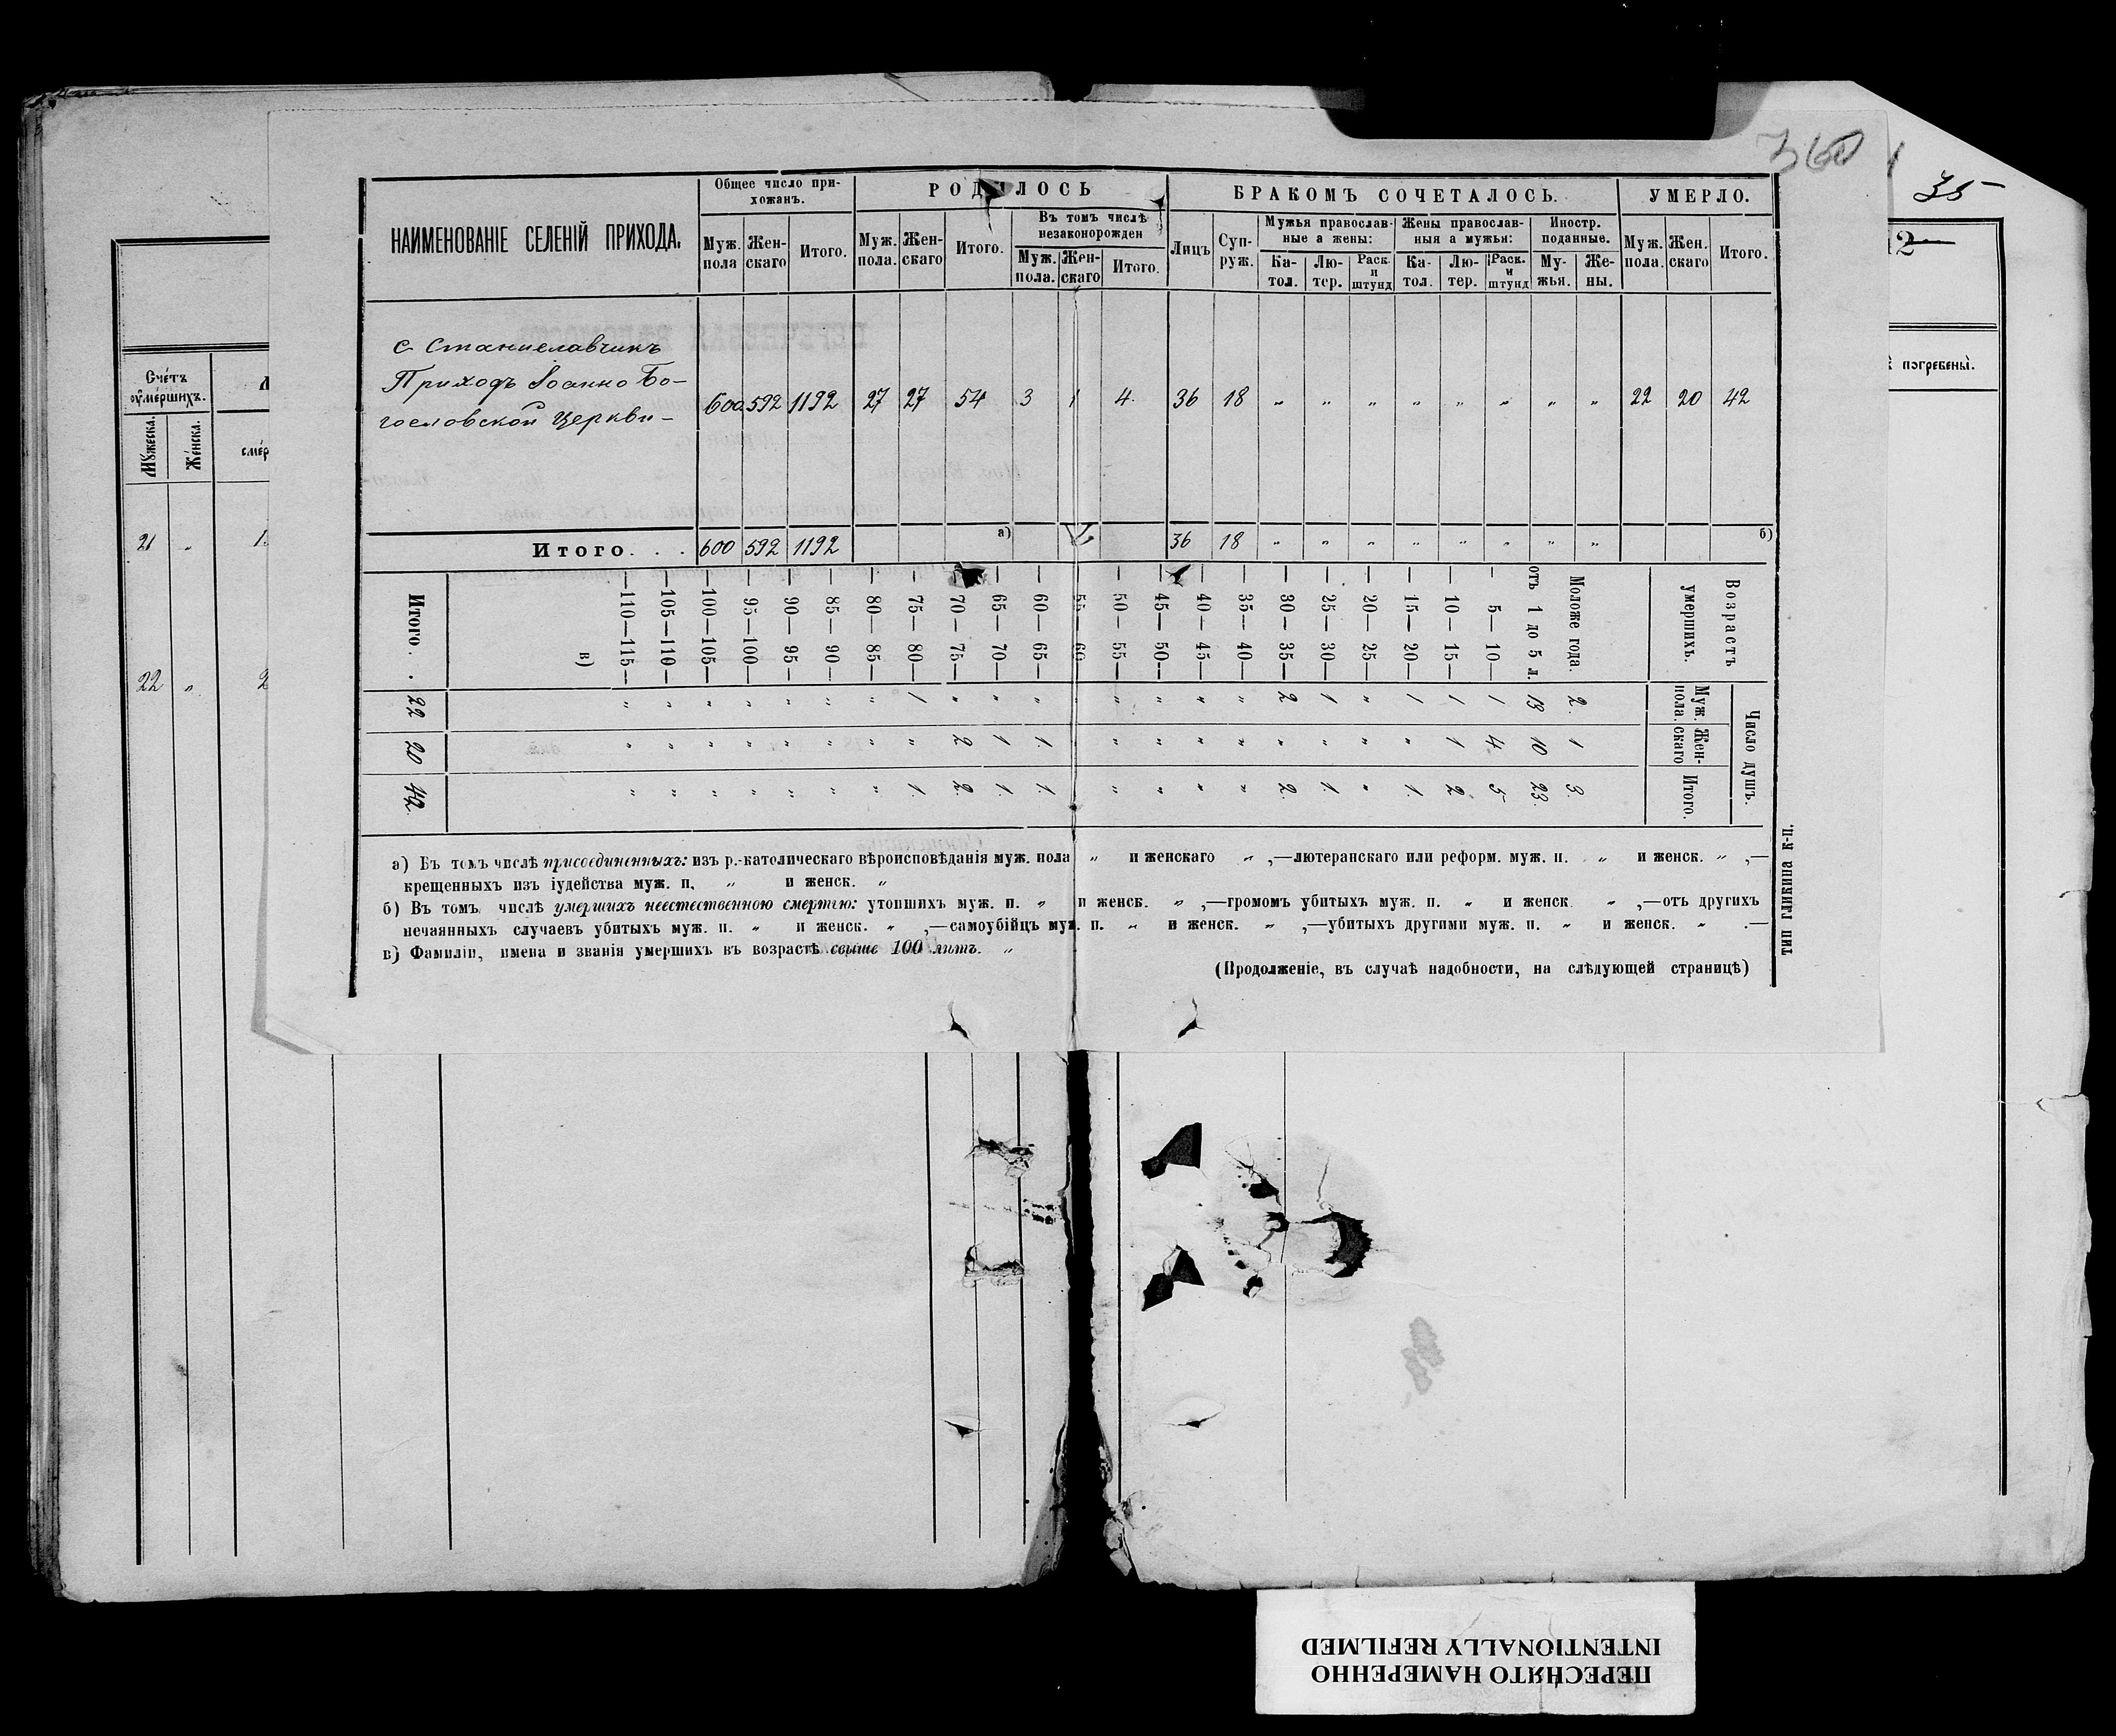 360
35
2
НАИМЕНОВАНІЕ СЕЛЕНІЙ ПРИХОДА.
Общее число при-
хожанъ.
Муж.
пола
Жен-
скаго
Итого.
РОДИЛОСЬ
Муж.
пола.
Жен-
скаго
Итого.
Въ томъ числѣ
незаконорожден
Муж.
пола.
Жен-
скаго
Итого.
БРАКОМЪ СОЧЕТАЛОСЬ.
Лицъ
Суп-
руж.
Мужья православ-
ные а жены:
Ка-
тол.
Лю-
тер.
Раск.
и
штунд
Жены православ-
ныя а мужьи:
Ка-
тол.
Лю-
тер.
Раск.
и
штунд
Иностр.
поданные.
Му-
жья.
Же-
ны.
УМЕРЛО.
Муж.
пола.
Жен.
скаго
Итого.
с. Станиславчикъ
Приходъ Іоанно Бо-
гословской Церкви –
600 592 1192 27 27 54 3 1 4. 36 18 „ „ „ „ „ „ „ „ 22 20 42
Итого. . . 600 592 1192 а) 36 18 „ „ „ „ „ „ „ „ б)
Возрастъ
умершихъ.
Число душъ.
Муж.
пола.
Жен-
скаго
Итого.
Моложе года. 2. 1 3.
отъ 1 до 5 л. 13 10 23.
— 5— 10— 1 4 5
—10— 15— 1 1 2
—15— 20— 1 „ 1.
—20— 25— „ „ „
—25— 30— 1 „ 1.
—30— 35— 2 „ 2.
—35— 40— „ „ „
—40— 45— „ „ „
—45— 50— „ „ „
—50— 55— „ „ „
—55— 60
—60— 65— „ 1. 1.
—65— 70— „ 1 1.
—70— 75— „ 2 2.
—75— 80— 1 „ 1.
—80— 85— „ „ „
—85— 90— „ „ „
—90— 95— „ „ „
—95—100— „ „ „
—100—105— „ „ „
—105—110— „ „ „
—110—115— „ „ „
в)
Итого. . 22 20 42.
а) Въ томъ числѣ присоединенныхъ: изъ р.-католическаго вѣроисповѣданія муж. пола „ и женскаго „ ,—лютеранскаго или реформ. муж. п. „ и женск. „ ,—
крещенныхъ изъ іудейства муж. п. „ и женск. „
б) Въ томъ числѣ умершихъ неестественною смертію: утопшихъ муж. п. „ и женск. „ ,—громомъ убитыхъ муж. п. „ и женск „ ,—отъ другихъ
нечаянныхъ случаевъ убитыхъ муж. п. „ и женск. „ ,—самоубійцъ муж. п. „ и женск. „ ,—убитыхъ другими муж. п. „ и женск. „ .—
в) Фамиліи, имена и званія умершихъ въ возрастѣ свыше 100 лѣтъ. „
(Продолженіе, въ случаѣ надобности, на слѣдующей страницѣ)
ТИП ГЛИКИНА К-П.
Счетъ
оумершихъ.
Мужеска.
Женска.
21 „
22 „ 2
погребены.
ПЕРЕСНЯТО НАМЕРЕННО
INTENTIONALLY REFILMED